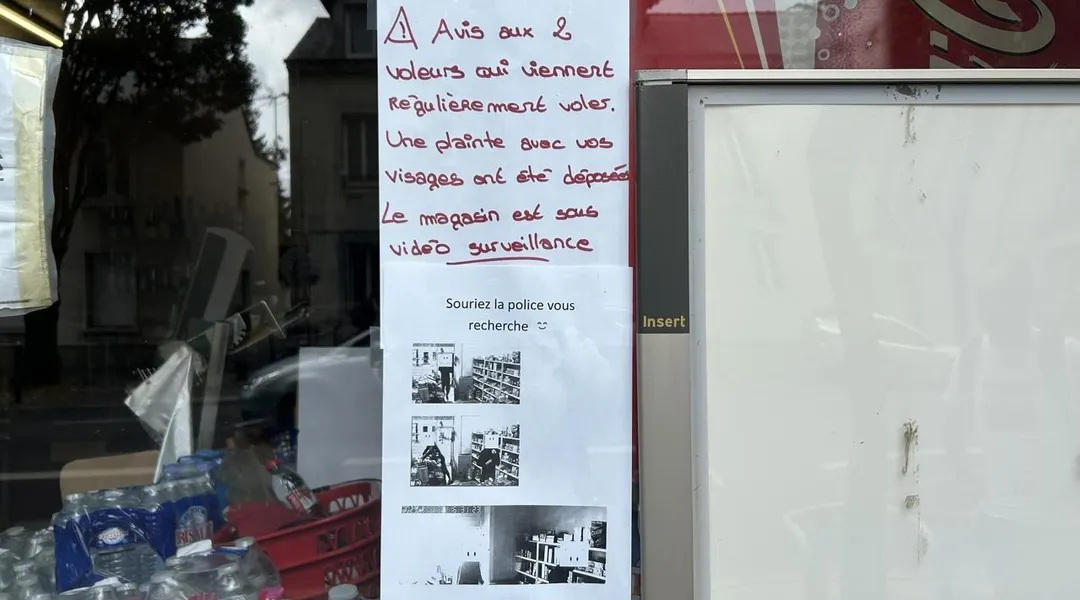 ⚠ Avis aux 2
voleurs qui viennent
régulièrement voler.
Une plainte avec vos
visages ont été déposées
Le magasin est sous
vidéo surveillance
Souriez la police vous
recherche
Insert